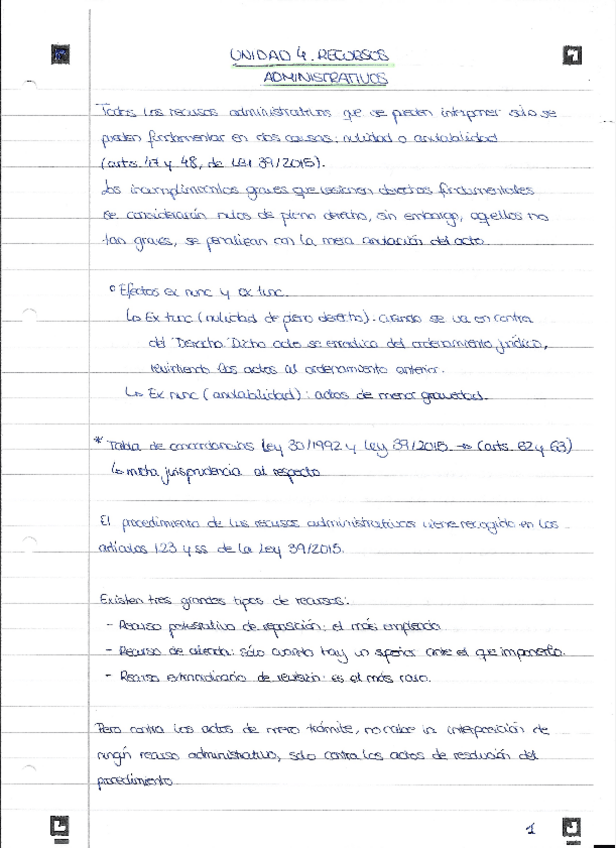 UNIDAD 4. RECURSOS
ADMINISTRATIVOS
Todos los recursos administrativos que se pueden interponer sólo se
pueden fundamentar en dos causas: nulidad o anulabilidad
(arts. 47 y 48, de Ley 39/2015).
Los incumplimientos graves que lesionen derechos fundamentales
se considerarán nulos de pleno derecho, sin embargo, aquellos no
tan graves, se penalizan con la mera anulación del acto.
Efectos ex nunc y ex tunc.
↳ Ex tunc (nulidad de pleno derecho). cuando se va en contra
del Derecho. Dicho acto se erradica del ordenamiento jurídico,
los actos al ordenamiento anterior.
↳ Ex nunc (anulabilidad): actos de menor gravedad.
* Tabla de concordancias Ley 30/1992 y Ley 39/2015. → (arts. 62 y 63)
↳ mucha jurisprudencia al respecto
El procedimiento de los recursos administrativos viene recogido en los
artículos 123 y ss de la Ley 39/2015.
Existen tres grandes tipos de recursos:
- Recurso potestativo de reposición: el más empleado
- Recurso de alzada: sólo cuando hay un superior ante el que imponerlo.
- Recurso extraordinario de revisión: es el más raro.
Pero contra los actos de mero trámite, no cabe la interposición de
ningún recurso administrativo, solo contra los actos de resolución del
procedimiento
1